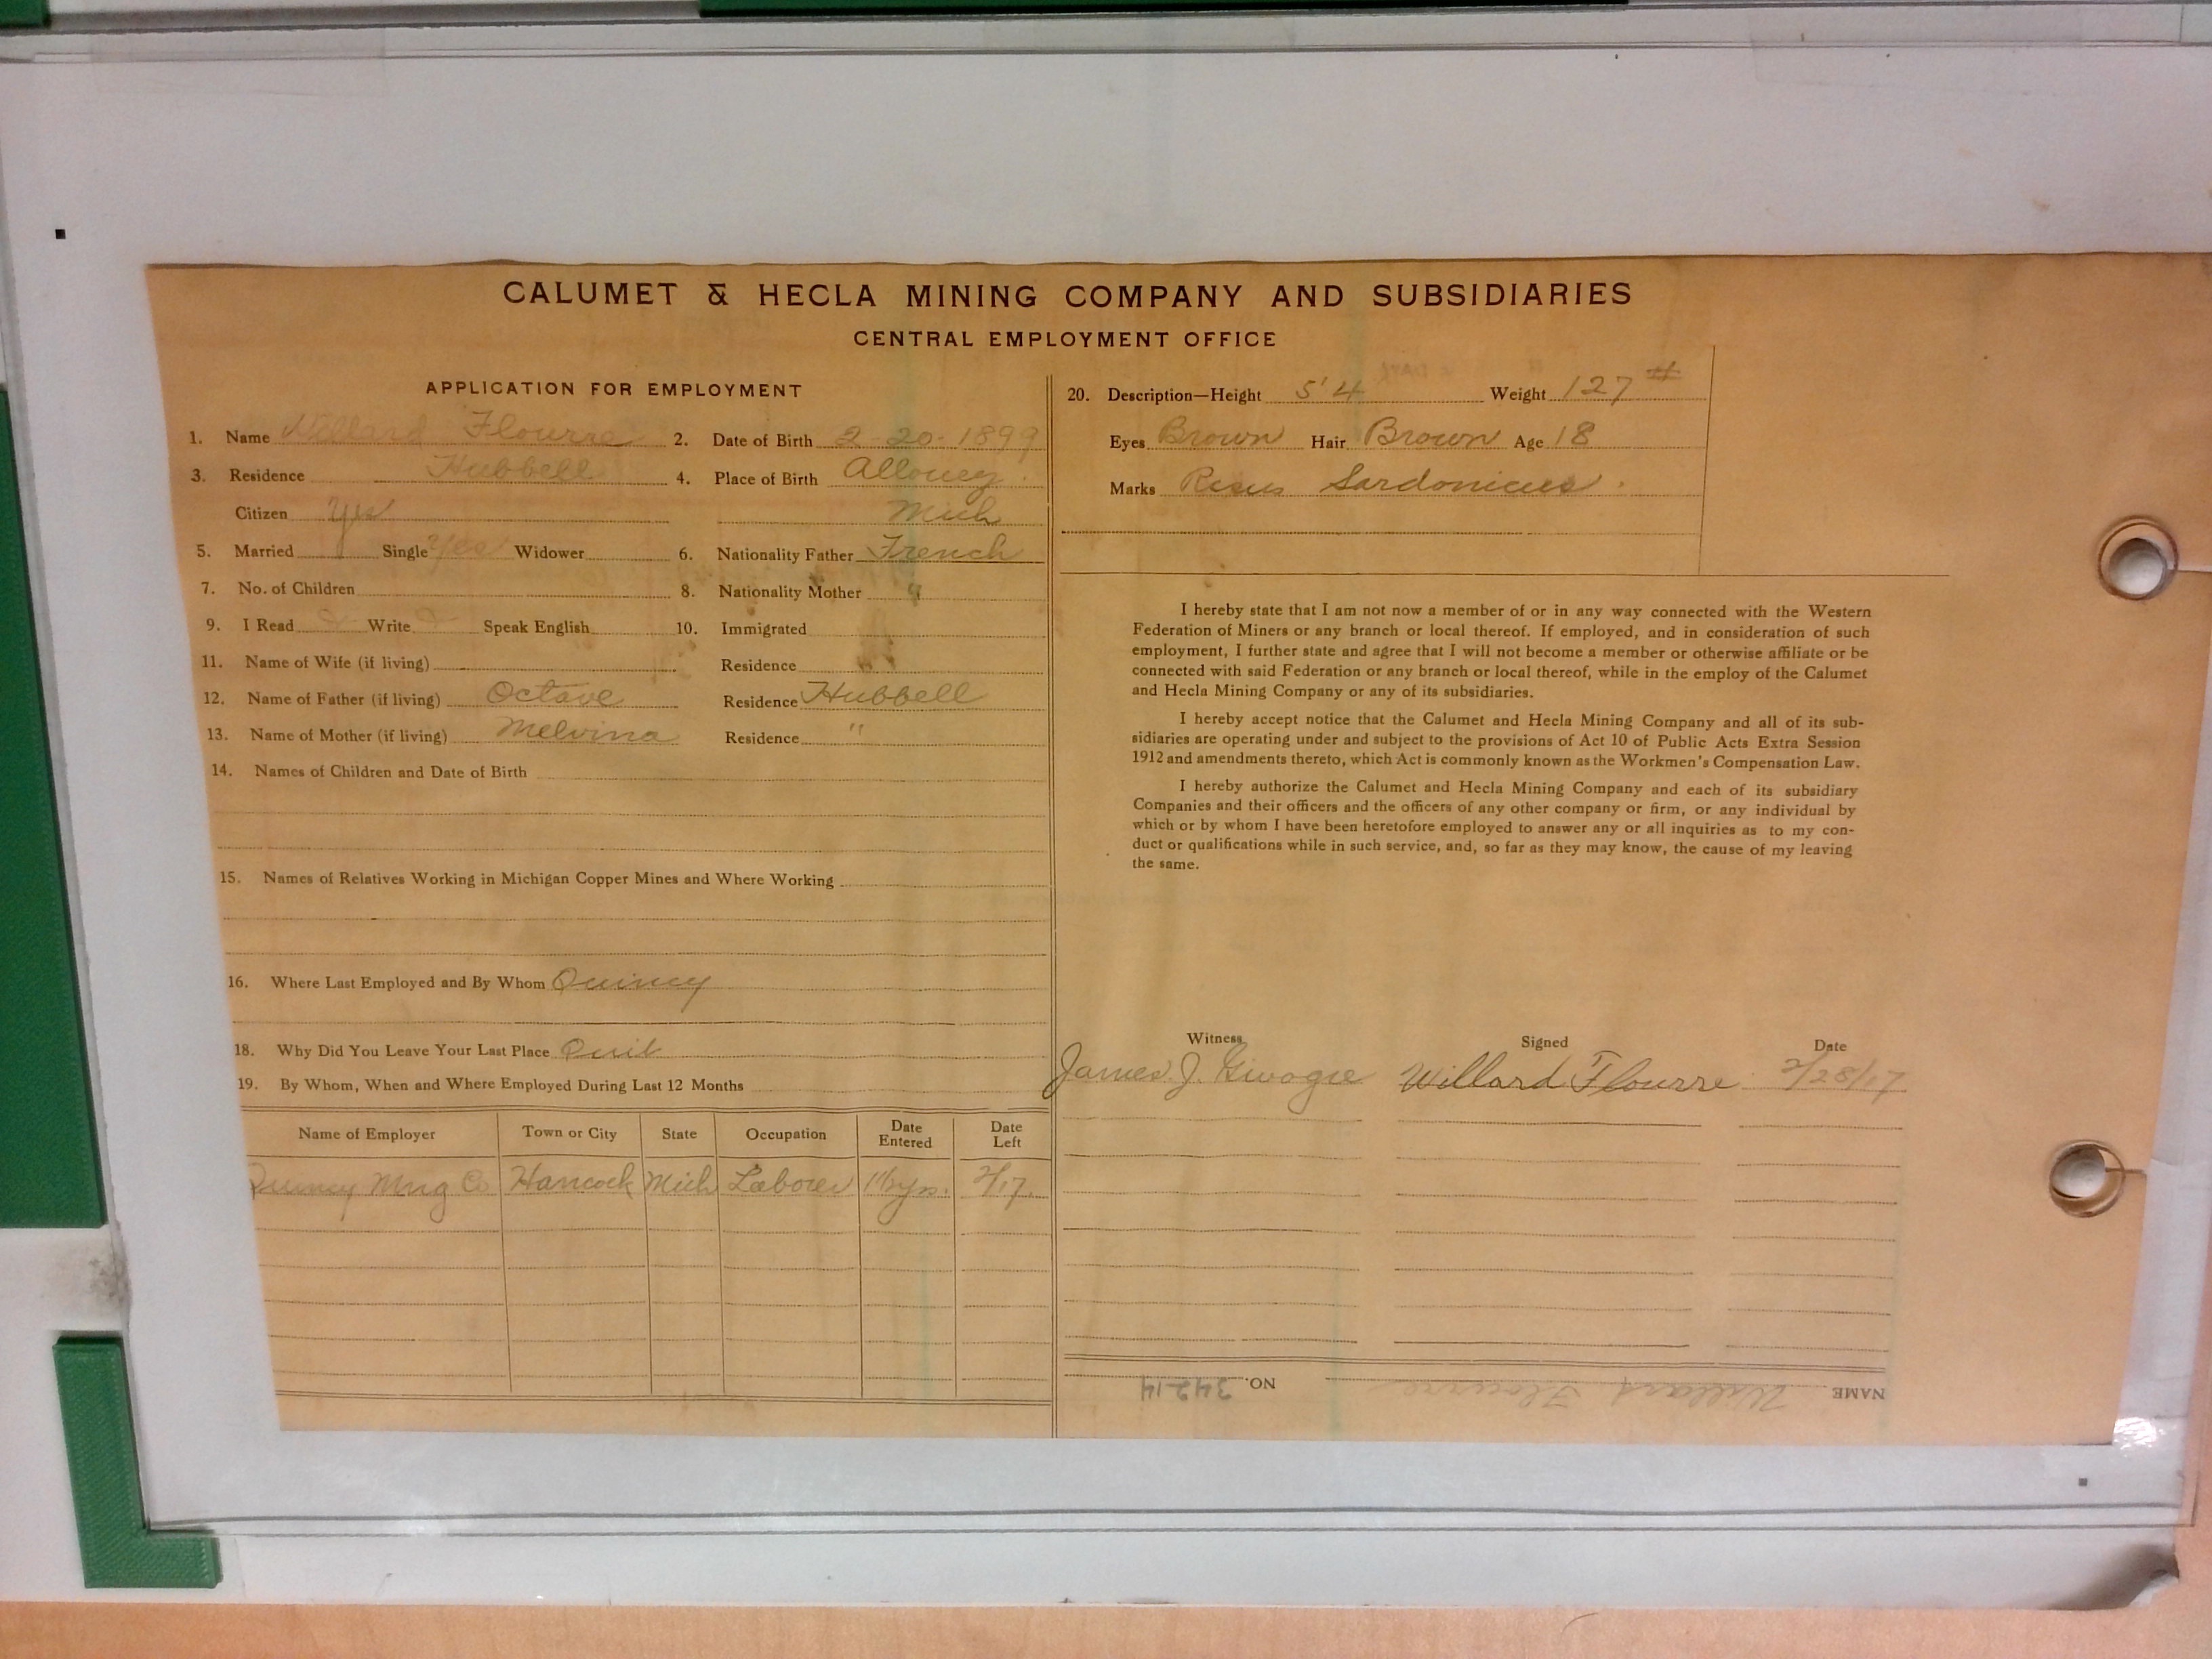 CALUMET & HECLA MINING COMPANY AND SUBSIDIARIES
CENTRAL EMPLOYMENT OFFICE
APPLICATION FOR EMPLOYMENT
1. Name Willard Flourre 2. Date of Birth 2-20-1899
3. Residence Hubbell 4. Place of Birth Allouez
Citizen Yes Mich
5. Married Single Yes Widower 6. Nationality Father French
7. No. of Children 8. Nationality Mother "
9. I Read Write Speak English 10. Immigrated
11. Name of Wife (if living) Residence
12. Name of Father (if living) Octave Residence Hubbell
13. Name of Mother (if living) Melvina Residence "
14. Names of Children and Date of Birth
15. Names of Relatives Working in Michigan Copper Mines and Where Working
16. Where Last Employed and By Whom Quincy
18. Why Did You Leave Your Last Place Quit
19. By Whom, When and Where Employed During Last 12 Months
Name of Employer Town or City State Occupation Date Entered Date Left
Quincy Mng Co Hancock Mich Laborer 2/17.
20. Description—Height 5'4 Weight 127 #
Eyes Brown Hair Brown Age 18
Marks Risus Sardonicus.
I hereby state that I am not now a member of or in any way connected with the Western
Federation of Miners or any branch or local thereof. If employed, and in consideration of such
employment, I further state and agree that I will not become a member or otherwise affiliate or be
connected with said Federation or any branch or local thereof, while in the employ of the Calumet
and Hecla Mining Company or any of its subsidiaries.
I hereby accept notice that the Calumet and Hecla Mining Company and all of its sub-
sidiaries are operating under and subject to the provisions of Act 10 of Public Acts Extra Session
1912 and amendments thereto, which Act is commonly known as the Workmen's Compensation Law.
I hereby authorize the Calumet and Hecla Mining Company and each of its subsidiary
Companies and their officers and the officers of any other company or firm, or any individual by
which or by whom I have been heretofore employed to answer any or all inquiries as to my con-
duct or qualifications while in such service, and, so far as they may know, the cause of my leaving
the same.
Witness Signed Date
James J. Willard Flourre 2/28/17
NAME Willard Flourre NO. 34214